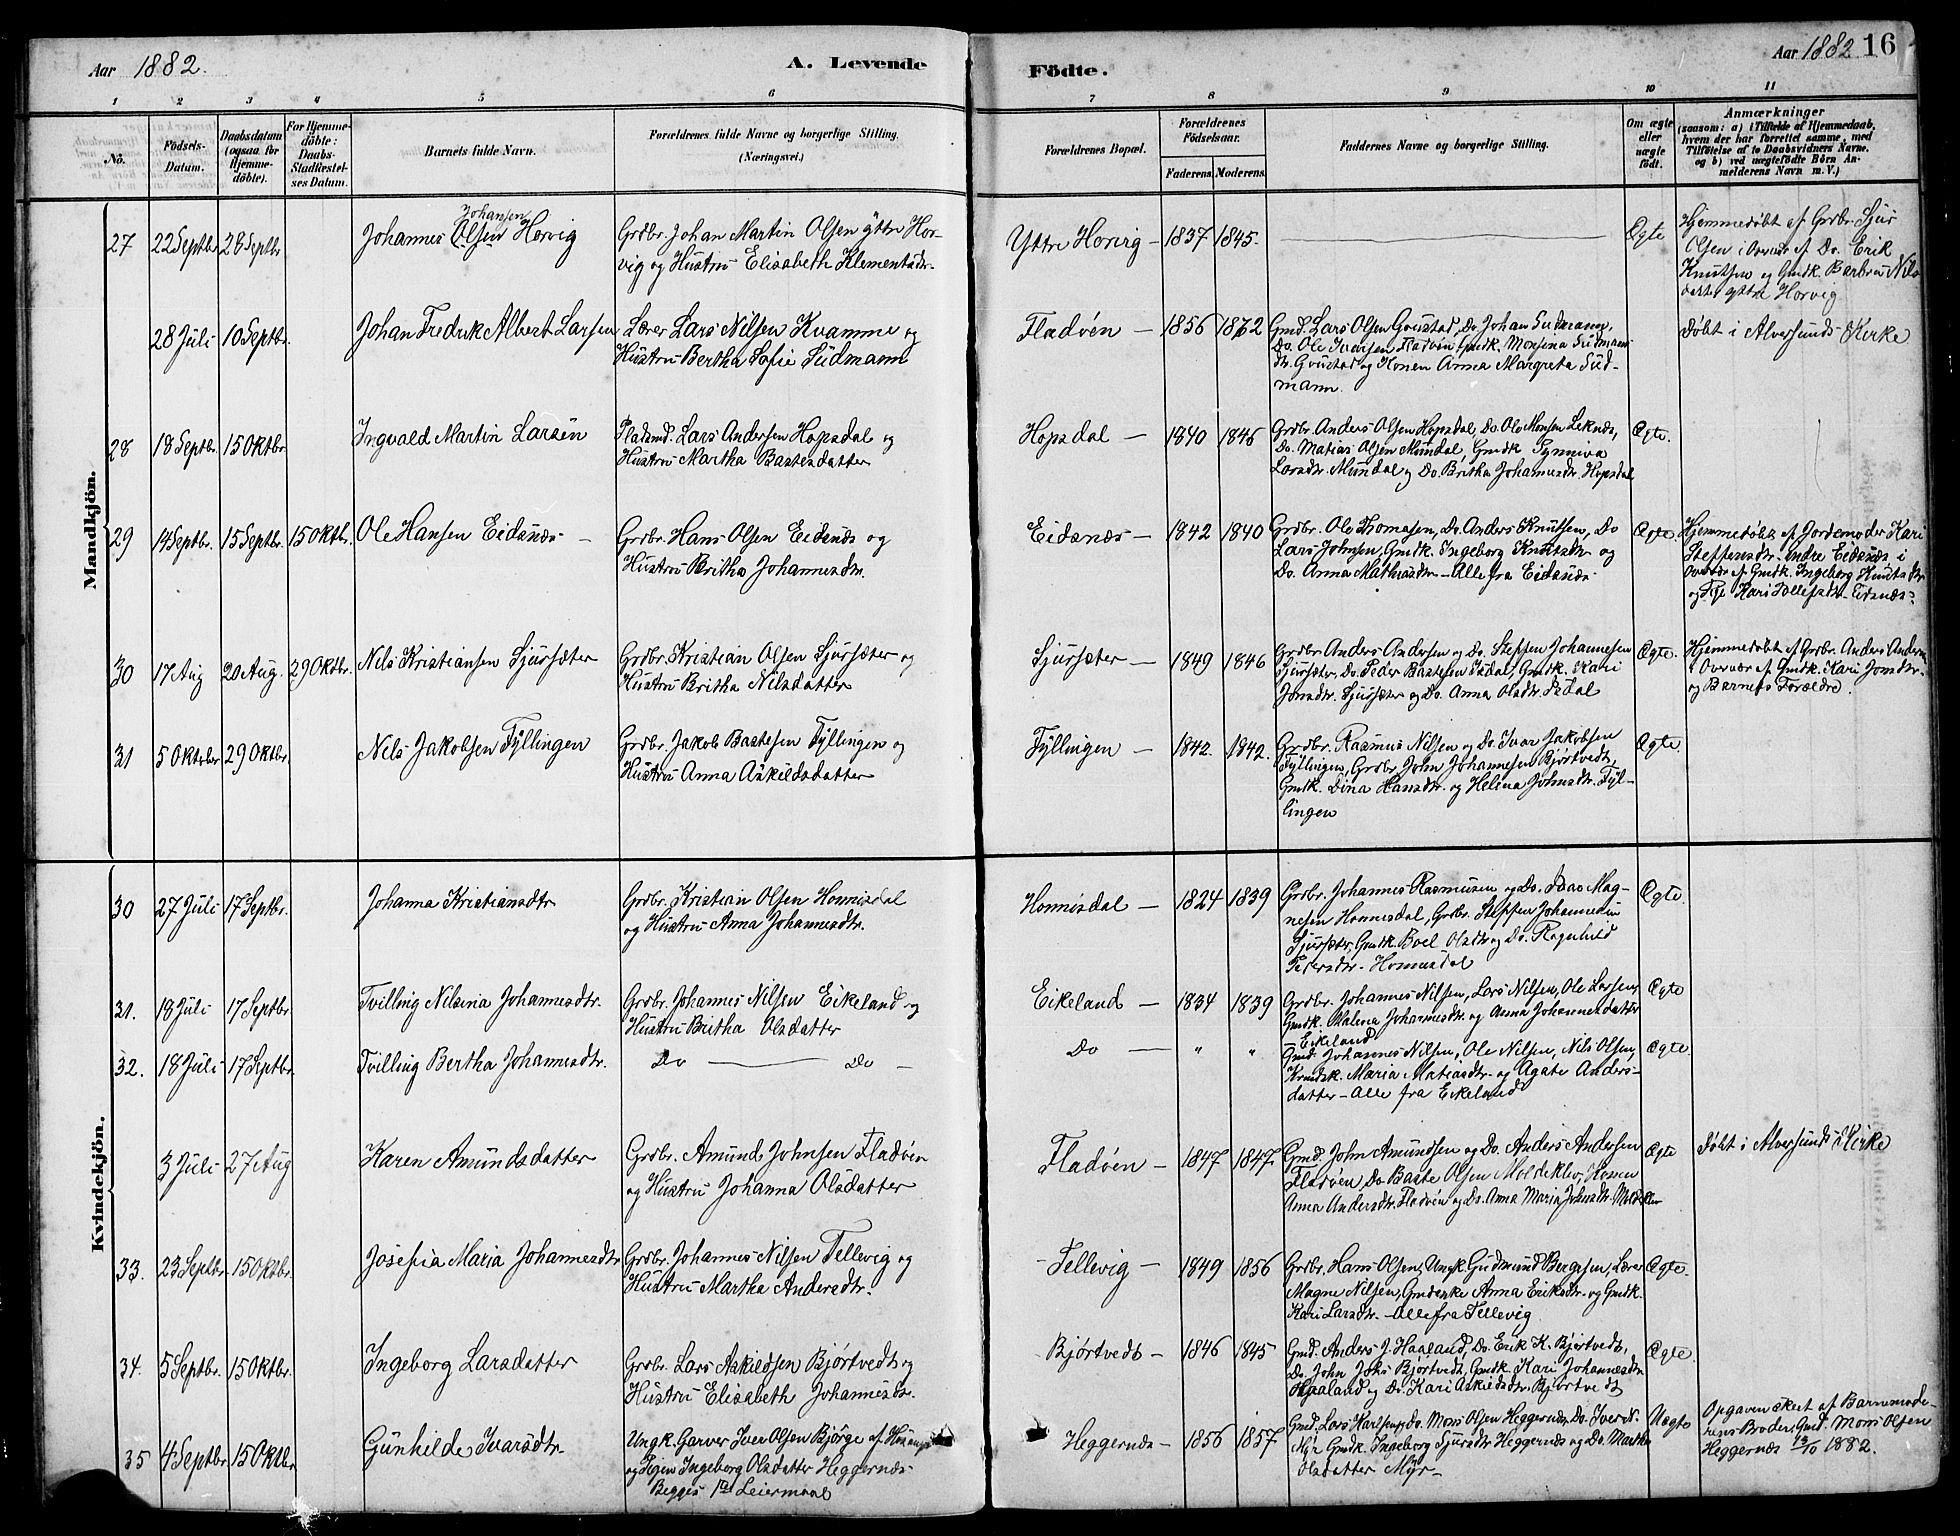 Aar 1882.
A. Levende
Födte.
Aar 1882
16
1 2 3 4 5 6 7 8 9 10 11
No.
Födsels-
Datum.
Daabsdatum
(ogsaa for
Hjemme-
döbte).
For Hjemme-
döbte:
Daabs-
Stadfæstel-
ses Datum.
Barnets fulde Navn.
Forældrenes fulde Navne og borgerlige Stilling.
(Næringsvei.)
Forældrenes Bopæl.
Forældrenes
Födselsaar.
Faderens.
Moderens.
Faddernes Navne og borgerlige Stilling.
Om ægte
eller
uægte
födt.
Anmærkninger
(saasom: a) i Tilfælde af Hjemmedaab,
hvem der har forrettet samme, med
Tilföielse af to Daabsvidners Navne,
og b) ved uægtefödte Börn An-
melderens Navn m. V.)
Mandkjön.
27 22 Septbr 28 Septbr
Johansen
Johannes Olsen Horvig
Grdbr. Johan Martin Olsen yttre Hor-
vig og Hustru Elisabeth Klementsdr.
Yttre Horvig – 1837 1845.
Ægte
Hjemmedøbt af Grdbr. Sjur
Olsen i Overvær af Do. Erik
Knutsen og Gmdk. Barbru Nils
datter yttre Horvig
28 Juli 10 Septbr.
Johan Fredrik Albert Larsen
Lærer Lars Nilsen Kvamme og
Hustru Bertha Sofie Sudmann
Fladvøn – 1856 1862
Gmd. Lars Olsen Gvustad, Do. Johan Sudmann,
Do. Ole Ivarsen Fladvøn Gmdk. Monsina Sudmann
dr. Gvustad og Konen Anna Margreta Sud-
mann.
Døbt i Alversunds Kirke
28 18 Septbr. 15 Oktbr.
Ingvald Martin Larsen
Pladsmd. Lars Andersen Hopsdal og
Hustru Martha Bastesdatter
Hopsdal – 1840 1846
Grdbr. Anders Olsen Hopsdal, Do. Ole Monsen Leknes,
Do. Matias Olsen Mundal, Gmdk Synniva
Larsdtr. Mundal og Do. Britha Johannesdr. Hopsdal
Ægte.
29 14 Septbr. 15 Septbr. 15 Oktbr.
Ole Hansen Eidsnæs –
Grdbr. Hans Olsen Eidsnæs og
Hustru Britha Johannesdtr.
Eidsnæs – 1842 1840
Grdbr. Ole Thomasen, Do. Anders Knutsen, Do
Lars Johnsen, Gmdk. Ingeborg Knutsdtr og
Do. Anna Mathiasdtr – Alle fra Eidsnæs.
Ægte.
Hjemmedøbt af Jordemoder Kari
Steffensdr. indre Eidsnæs i
Overvær af Gmdk. Ingeborg Knuts Dr
og Pige Kari Tollefsdtr – Eidsnæs.
30 17 Aug 20 Aug. 29 Oktbr.
Nils Kristiansen Sjursæter
Grdbr. Kristian Olsen Sjursæter og
Hustru Britha Nilsdatter
Sjursæter – 1849 1846
Grdbr. Anders Andersen og Do. Steffen Johannesen
Sjursæter, Do. Peder Bastesen Isdal, Gmdk. Kari
Jonsdtr. Sjursæter og Do. Anna Olsdtr. Isdal
Ægte.
Hjemmedøbt af Grdbr. Anders Andersen
i Overvær af Gmdk. Kari Jonsdtr.
og Barnets Forældre.
31 5 Oktober 29 Oktbr.
Nils Jakobsen Fyllingen
Grdbr. Jakob Bastesen Fyllingen og
Hustru Anna Askildsdatter
Fyllingen – 1842. 1842.
Grdbr. Rasmus Nilsen og Do. Ivar Jakobsen
Fyllingen, Grdbr. John Johannesen Bjørtvedt,
Gmdk. Dina Hansdtr. og Helena Johnsdtr. Fyl-
lingen
Ægte.
Kvindekjön.
30 27 Juli 17 Septbr.
Johanna Kristiansdtr
Grdbr. Kristian Olsen Honnisdal
og Hustru Anna Johannesdtr.
Honnisdal – 1824 1839
Grdbr. Johannes Rasmusen og Do. Isaac Mag-
nesen Honnesdal, Grdbr. Steffen Johannesen
Sjursæter, Gmdk. Boel Olsdtr og Do. Ragnhild
Pedersdtr. Honnesdal
Ægte.
31. 18 Juli 17 Septbr
Tvilling Nilsina Johannesdtr.
Grdbr. Johannes Nilsen Eikeland og
Hustru Britha Olsdatter
Eikeland – 1834 1839
Grdbr. Johannes Nilsen, Lars Nilsen, Ole Larsen,
Gmdk. Malena Johannesdtr og Anna Johannesdatter
– Eikeland
Ægte
32. 18 Juli 17 Septbr.
Tvilling Bertha Johannesdtr.
Do – Do –
Do – „ „
Gmd. Johannes Nilsen, Ole Nilsen, Nils Olsen,
Kmdsk. Maria Matiasdtr. og Agate Anders-
datter – Alle fra Eikeland
Ægte.
3 Juli 27 Aug
Karen Amundsdatter
Grdbr. Amund Johnsen Fladvøn
og Hustru Johanna Olsdatter
Fladvøn – 1847 1847.
Gmd. John Amundsen og Do. Anders Andersen
Fladvøn, Do Baste Olsen Moldeklev, Konen
Anna Andersdtr. Fladvøn og Do. Anna Maria Johnsdtr. Moldeklev
Ægte
Døbt i Alversunds Kirke
33. 23 Septbr 15 Oktbr.
Josefia Maria Johannesdtr
Grdbr. Johannes Nilsen Tellevig og
Hustru Martha Andersdtr.
Tellevig – 1849 1856
Grdbr. Hans Olsen, Ungk. Gudmund Bergesen, Lærer
Magne Nilsen, Gmdenke Anna Eriksdtr. og Gmdk.
Kari Larsdtr. – Alle fra Tellevig
Ægte.
34. 5 Septbr. 15 Oktbr.
Ingeborg Larsdatter
Grdbr. Lars Askildsen Bjørtvedt og
Hustru Elisabeth Johannesdr.
Bjørtvedt – 1846 1845
Gmd. Anders J. Haaland, Do. Erik K. Bjørtvedt,
Do. John Johs Bjørtvedt, Gmdk. Kari Johannesdtr
Haaland og Do. Kari Askildsdtr. Bjørtvedt
Ægte.
35 4 Septbr 15 Oktbr.
Gunhilde Ivarsdtr.
Ungk. Garver Iver Olsen Bjørge af
og Pigen Ingeborg Olsdatter Heggernæs.
Begges 1ste Leiermaal
Heggernæs – 1856 1857
Gmd. Lars Karlsen, Do. Mons Olsen Heggernæs, Do. Iver
Myr Gmdk. Ingeborg Sjursdtr Heggernæs og Do. Martha
Olsdatter Myr –
Uægte
Opgaven sket af Barnemode-
rens Broder Gmd. Mons Olsen
Heggernæs 13/10 1882.